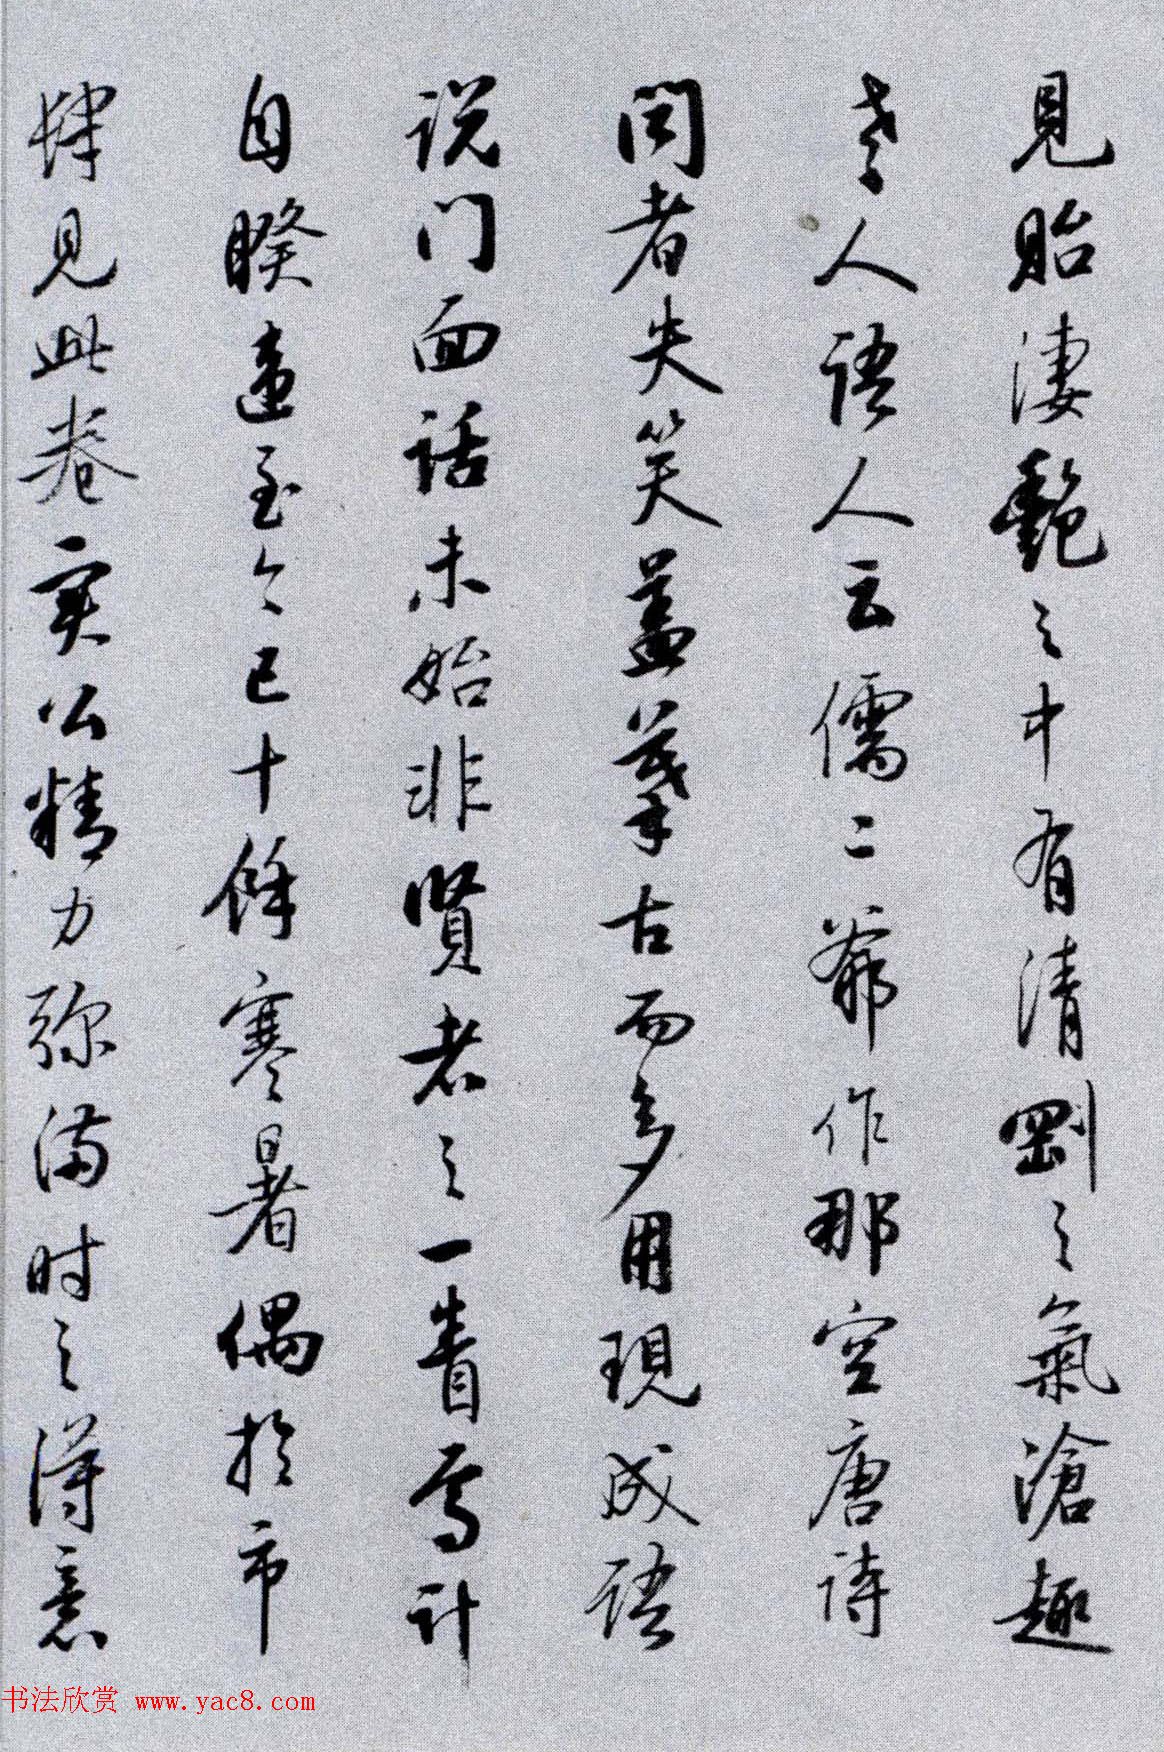 見貽淒艷之中有清剛之氣滄趣
老人語人云儒二爺作那空唐詩
聞者失笑蓋摹古而多用現成語
説门面话未始非賢者之一眚焉计
自暌違至今已十餘寒暑偶於市
肆見此卷实公精力弥满时之得意
书法欣赏 www.yac8.com